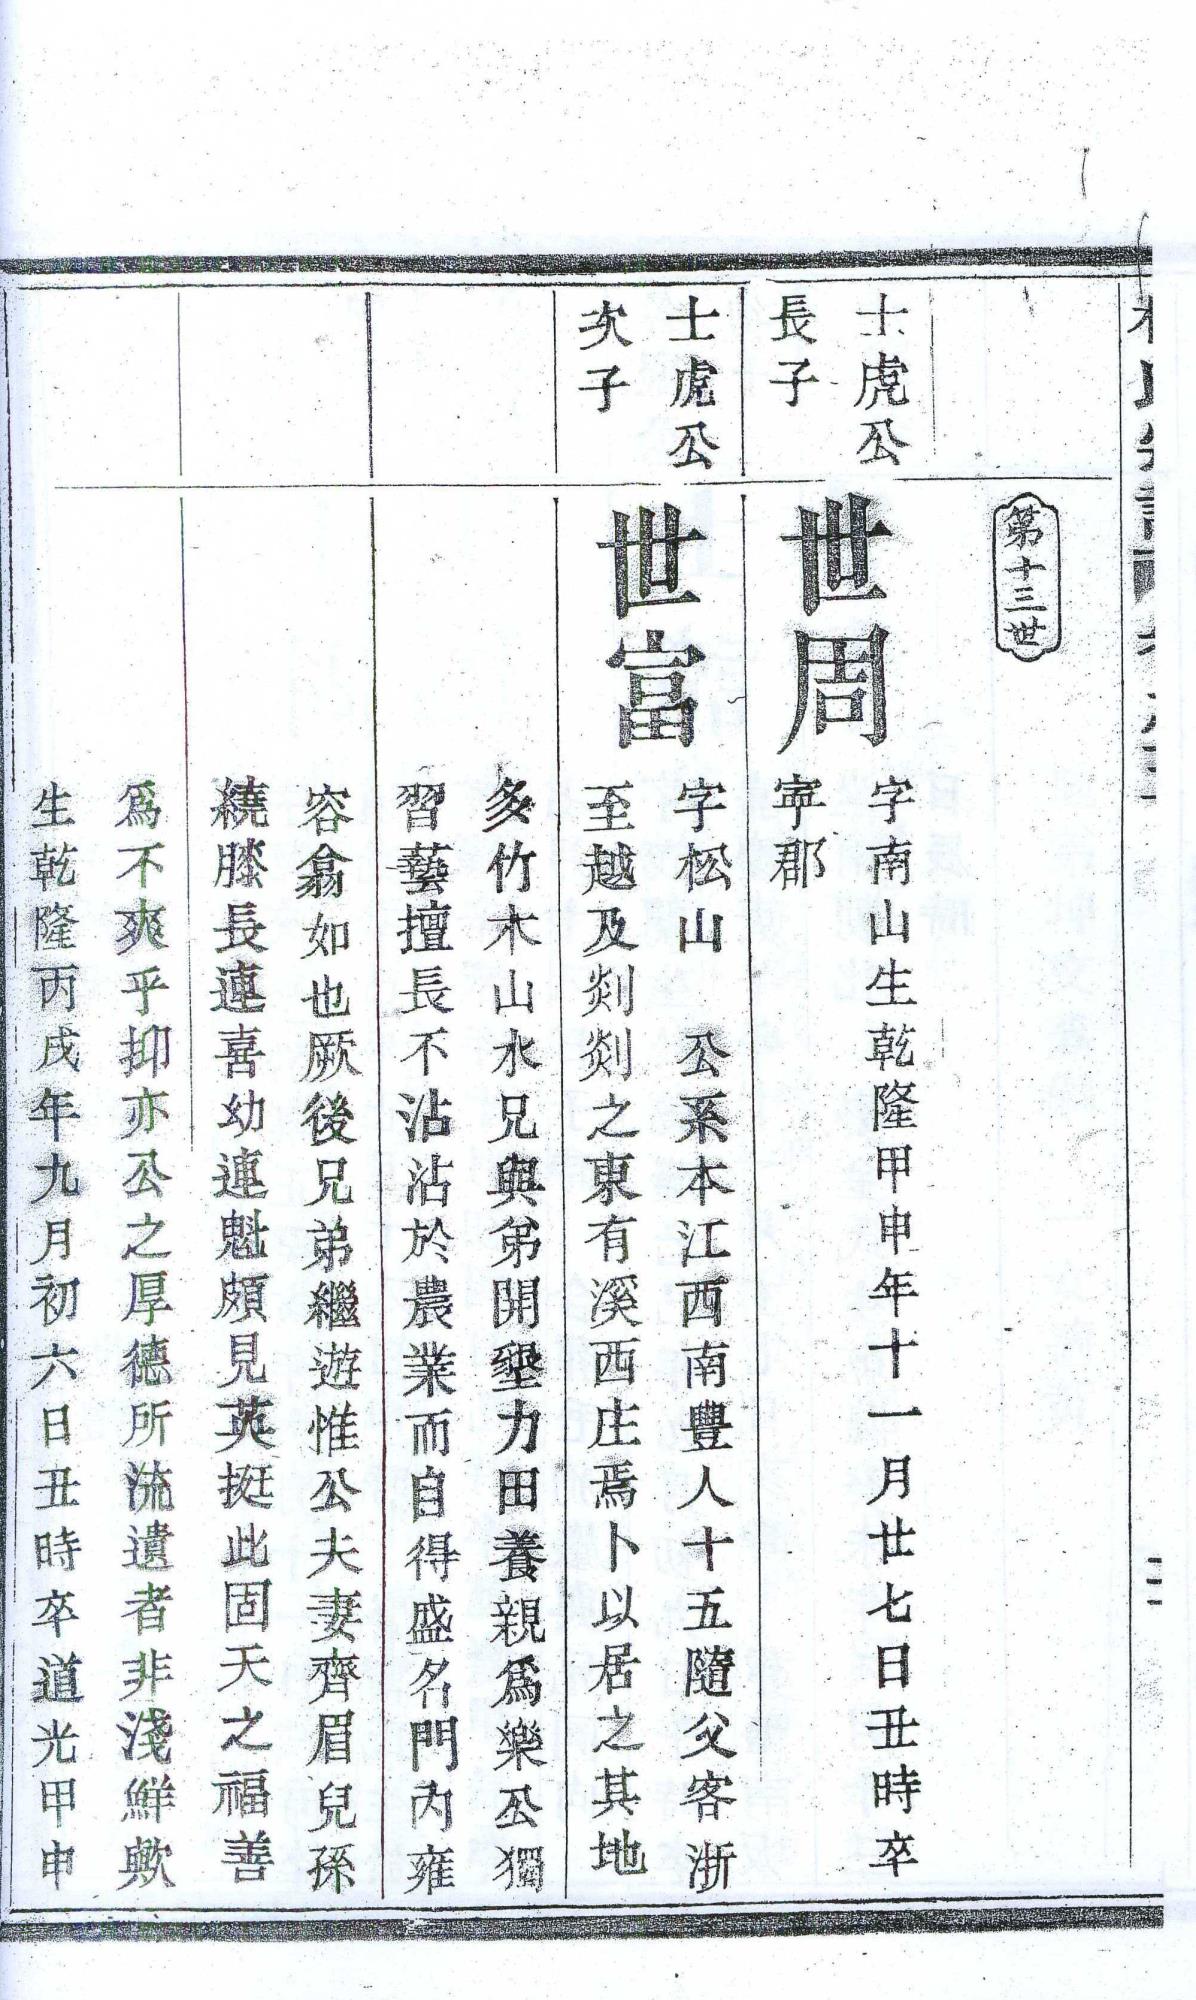 第十三世
士虎公
長子
世周
字南山生乾隆甲申年十一月廿七日丑時卒
寕郡
士虎公
次子
世富
字松山　公系本江西南豐人十五隨父客浙
至越及剡剡之東有溪西庄焉卜以居之其地
多竹木山水兄與弟開墾力田養親爲樂公獨
習藝擅長不沾沾於農業而自得盛名門內雍
容翕如也厥後兄弟繼遊惟公夫妻齊眉兒孫
繞膝長連喜幼連魁頗見英挺此固天之福善
爲不爽乎抑亦公之厚德所流遺者非淺鮮歟
生乾隆丙戌年九月初六日丑時卒道光甲申